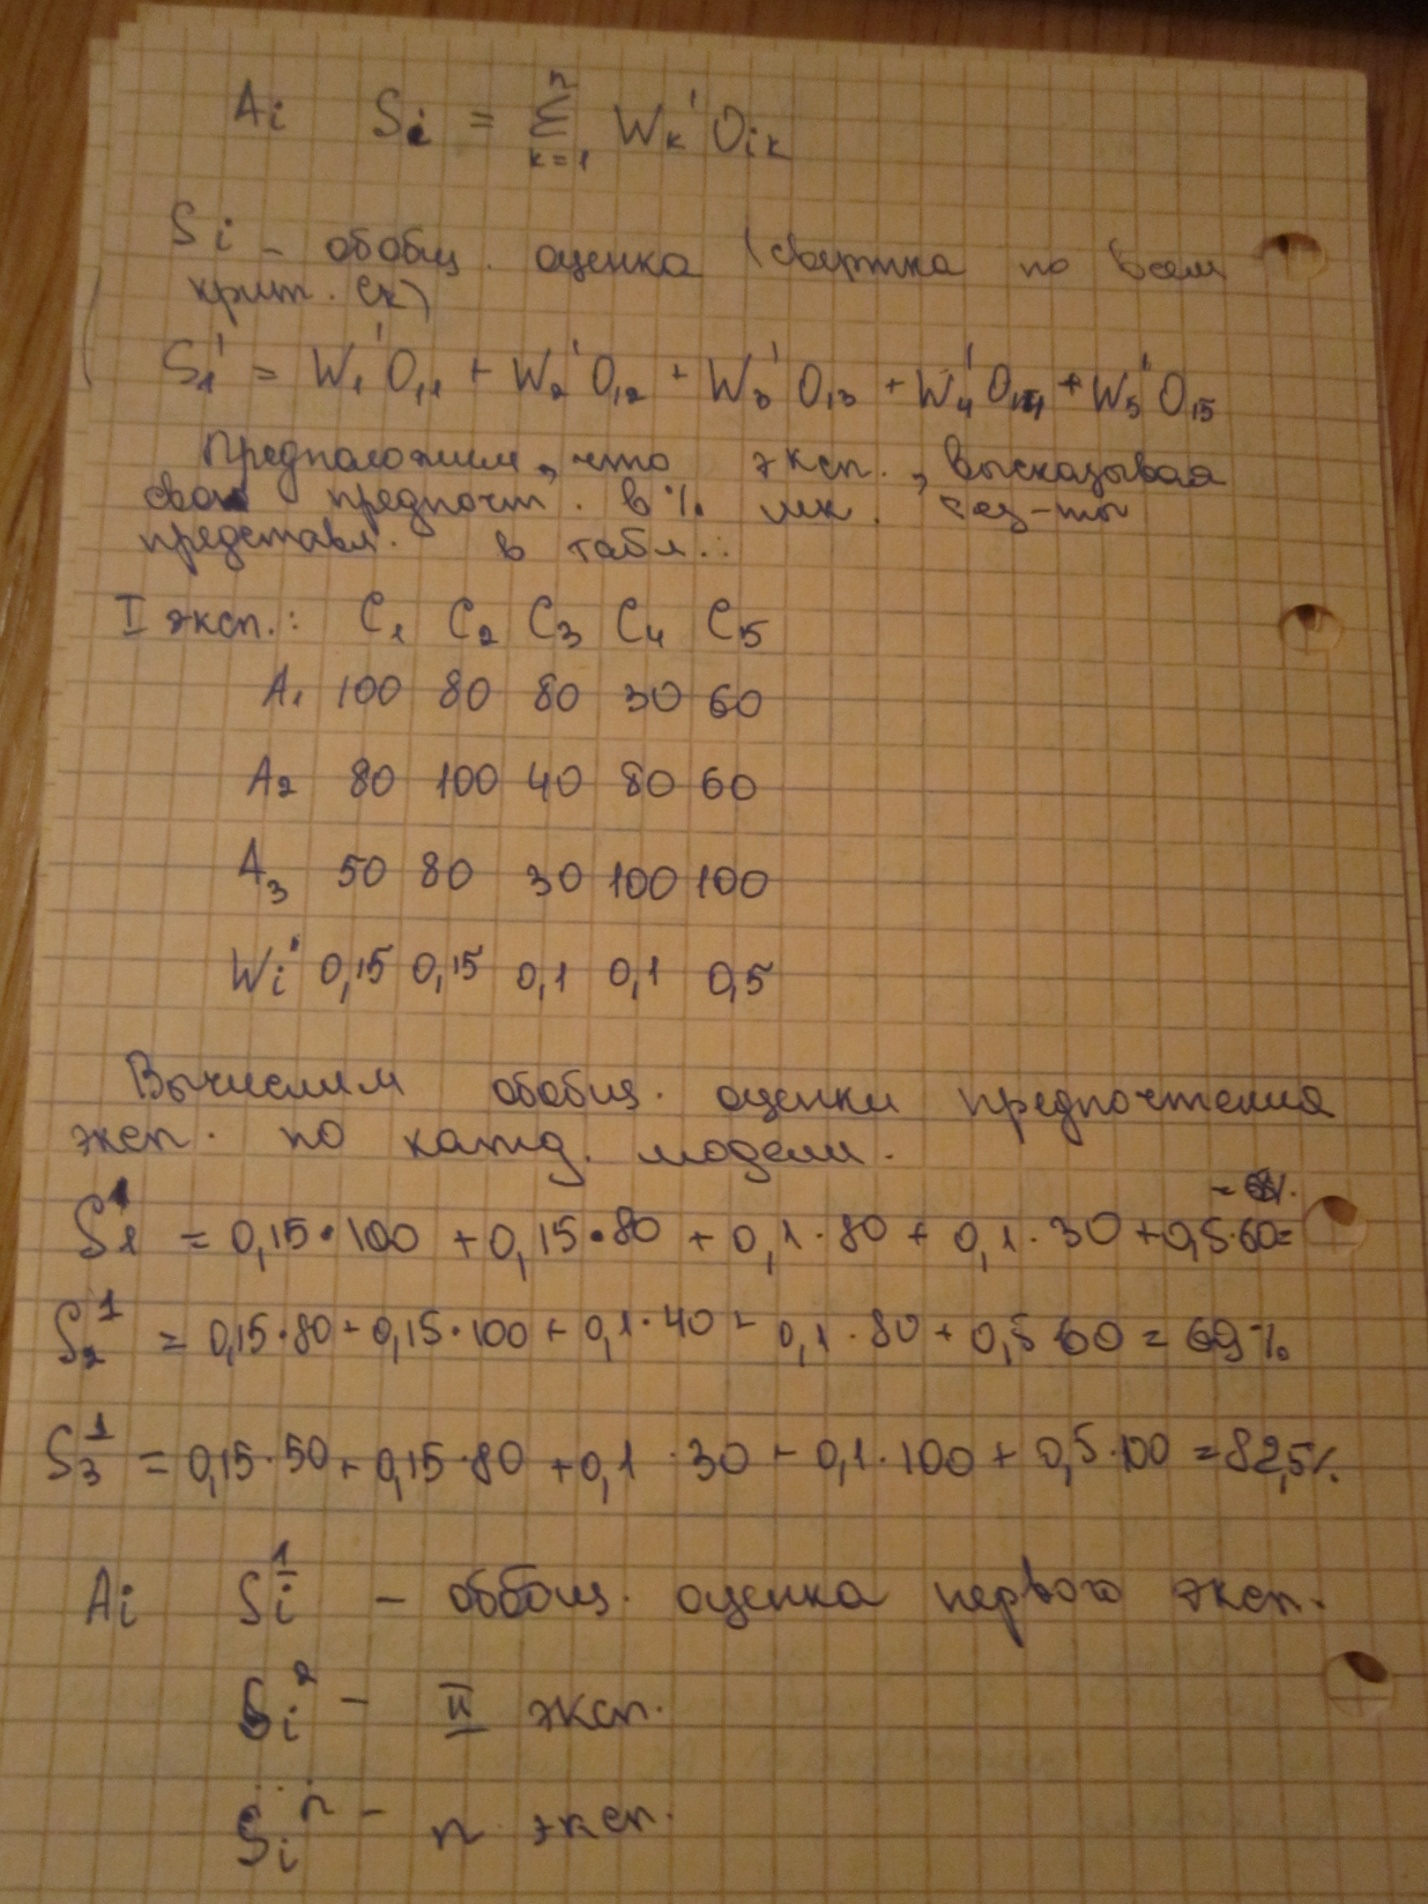 Ai Si = Σ n k=1 Wk' Oik
Si - обобщ. оценка (свертка по всем
крит. Ck)
S1' = W1' O11 + W2' O12 + W3' O13 + W4' O14 + W5' O15
Предположим, что эксп., высказывая
свои предпочт. в % шк. рез-ты
представл. в табл.:
I эксп.: C1 C2 C3 C4 C5
A1 100 80 80 30 60
A2 80 100 40 80 60
A3 50 80 30 100 100
Wi' 0,15 0,15 0,1 0,1 0,5
Вычислим обобщ. оценки предпочтения
эксп. по кажд. модели.
S1^1 = 0,15·100 + 0,15·80 + 0,1·80 + 0,1·30 + 0,5·60 =
S2^1 = 0,15·80 + 0,15·100 + 0,1·40 + 0,1·80 + 0,5 60 = 69%
S3^1 = 0,15·50 + 0,15·80 + 0,1·30 + 0,1·100 + 0,5·100 = 82,5%
Ai Si^1 - обобщ. оценка первого эксп.
Si^2 - II эксп.
Si^n - n эксп.